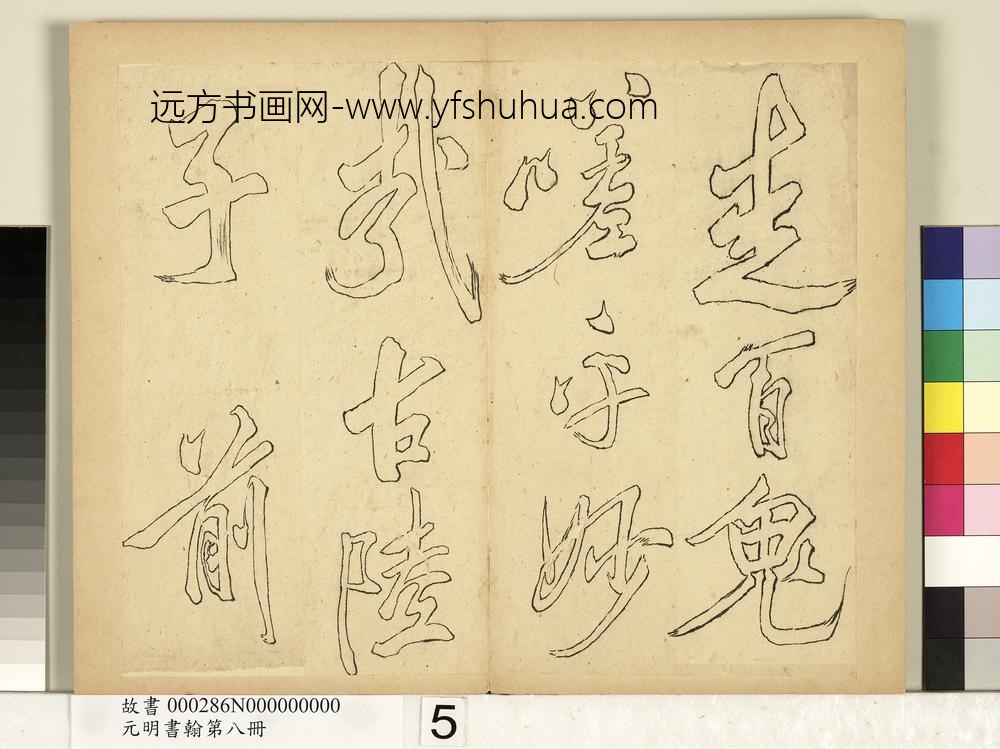 走百鬼
嗟乎妙
哉古陸
子前
远方书画网-www.yfshuhua.com
故書 000286N000000000
元明書翰第八冊
5